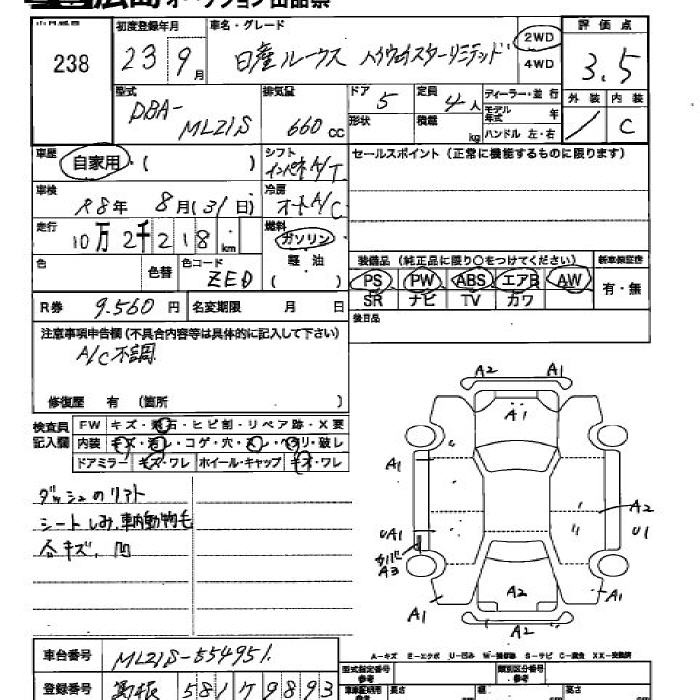 広島オークション出品票
238
初度登録年月
23 9月
車名・グレード
日産 ルークス ハイウェイスターリミテッド
2WD
4WD
評価点
3.5
外装 内装
/ C
型式
DBA-
ML21S
排気量
660 cc
ドア 5
形状
定員 4人
積載 kg
ディーラー・並行
モデル年式 年
ハンドル 左・右
車歴
自家用・( )
シフト
インパネA/T
セールスポイント(正常に機能するものに限ります)
車検
R8年 8月(31日)
冷房
オートA/C
走行
10万2千218km
燃料
ガソリン
軽油
( )
色
色替
色コード
ZED
装備品(純正品に限り○をつけてください)
PS PW ABS エアB AW
SR ナビ TV カワ
新車保証書
有・無
R券 9.560円
名変期限 月 日
後日品
注意事項申告欄(不具合内容等は具体的に記入して下さい)
A/C不調
修復歴 有 (箇所 )
検査員
記入欄
FW キズ・飛石・ヒビ割・リペア跡・X要
内装 キズ・汚レ・コゲ・穴・スレ・ヘタリ・破レ
ドアミラー キズ・ワレ ホイール・キャップ キズ・ワレ
ダッシュのリフト
シートしみ、車内動物毛
各キズ、凹
A2 A1
A1
A1
A2
U1
UA1
カバー
A3
A2
A1
A1
A2
A-キズ E-エクボ U-凹み W-補修跡 S-サビ C-腐食 XX-交換済
車台番号
ML21S-554951
登録番号
島根 581 ケ 9893
型式指定番号
参考
類別区分番号
参考
車車証明用
参考
長さ
幅
高さ